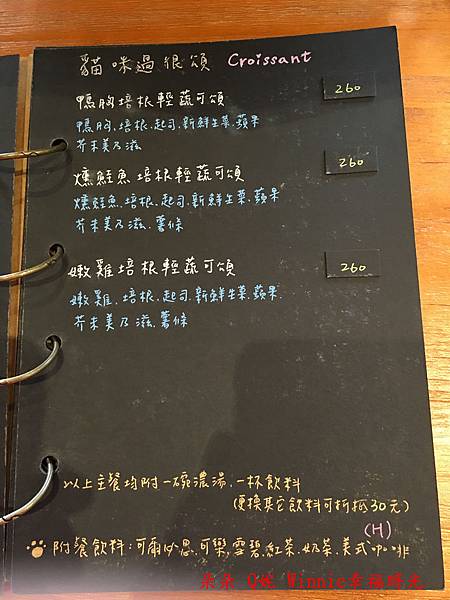 貓咪過很頌 Croissant
鴨胸培根輕蔬可頌 260
鴨胸.培根.起司.新鮮生菜.蘋果
芥末美乃滋
燻鮭魚培根輕蔬可頌 260
燻鮭魚.培根.起司.新鮮生菜.蘋果
芥末美乃滋.薯條
嫩雞培根輕蔬可頌 260
嫩雞.培根.起司.新鮮生菜.蘋果.
芥末美乃滋.薯條
以上主餐均附一碗濃湯.一杯飲料
(更換其它飲料可折抵30元)
(H)
附餐飲料:可爾必思.可樂.雪碧.紅茶.奶茶.美式咖啡
朵朵 Q妮 Winnie幸福曙光